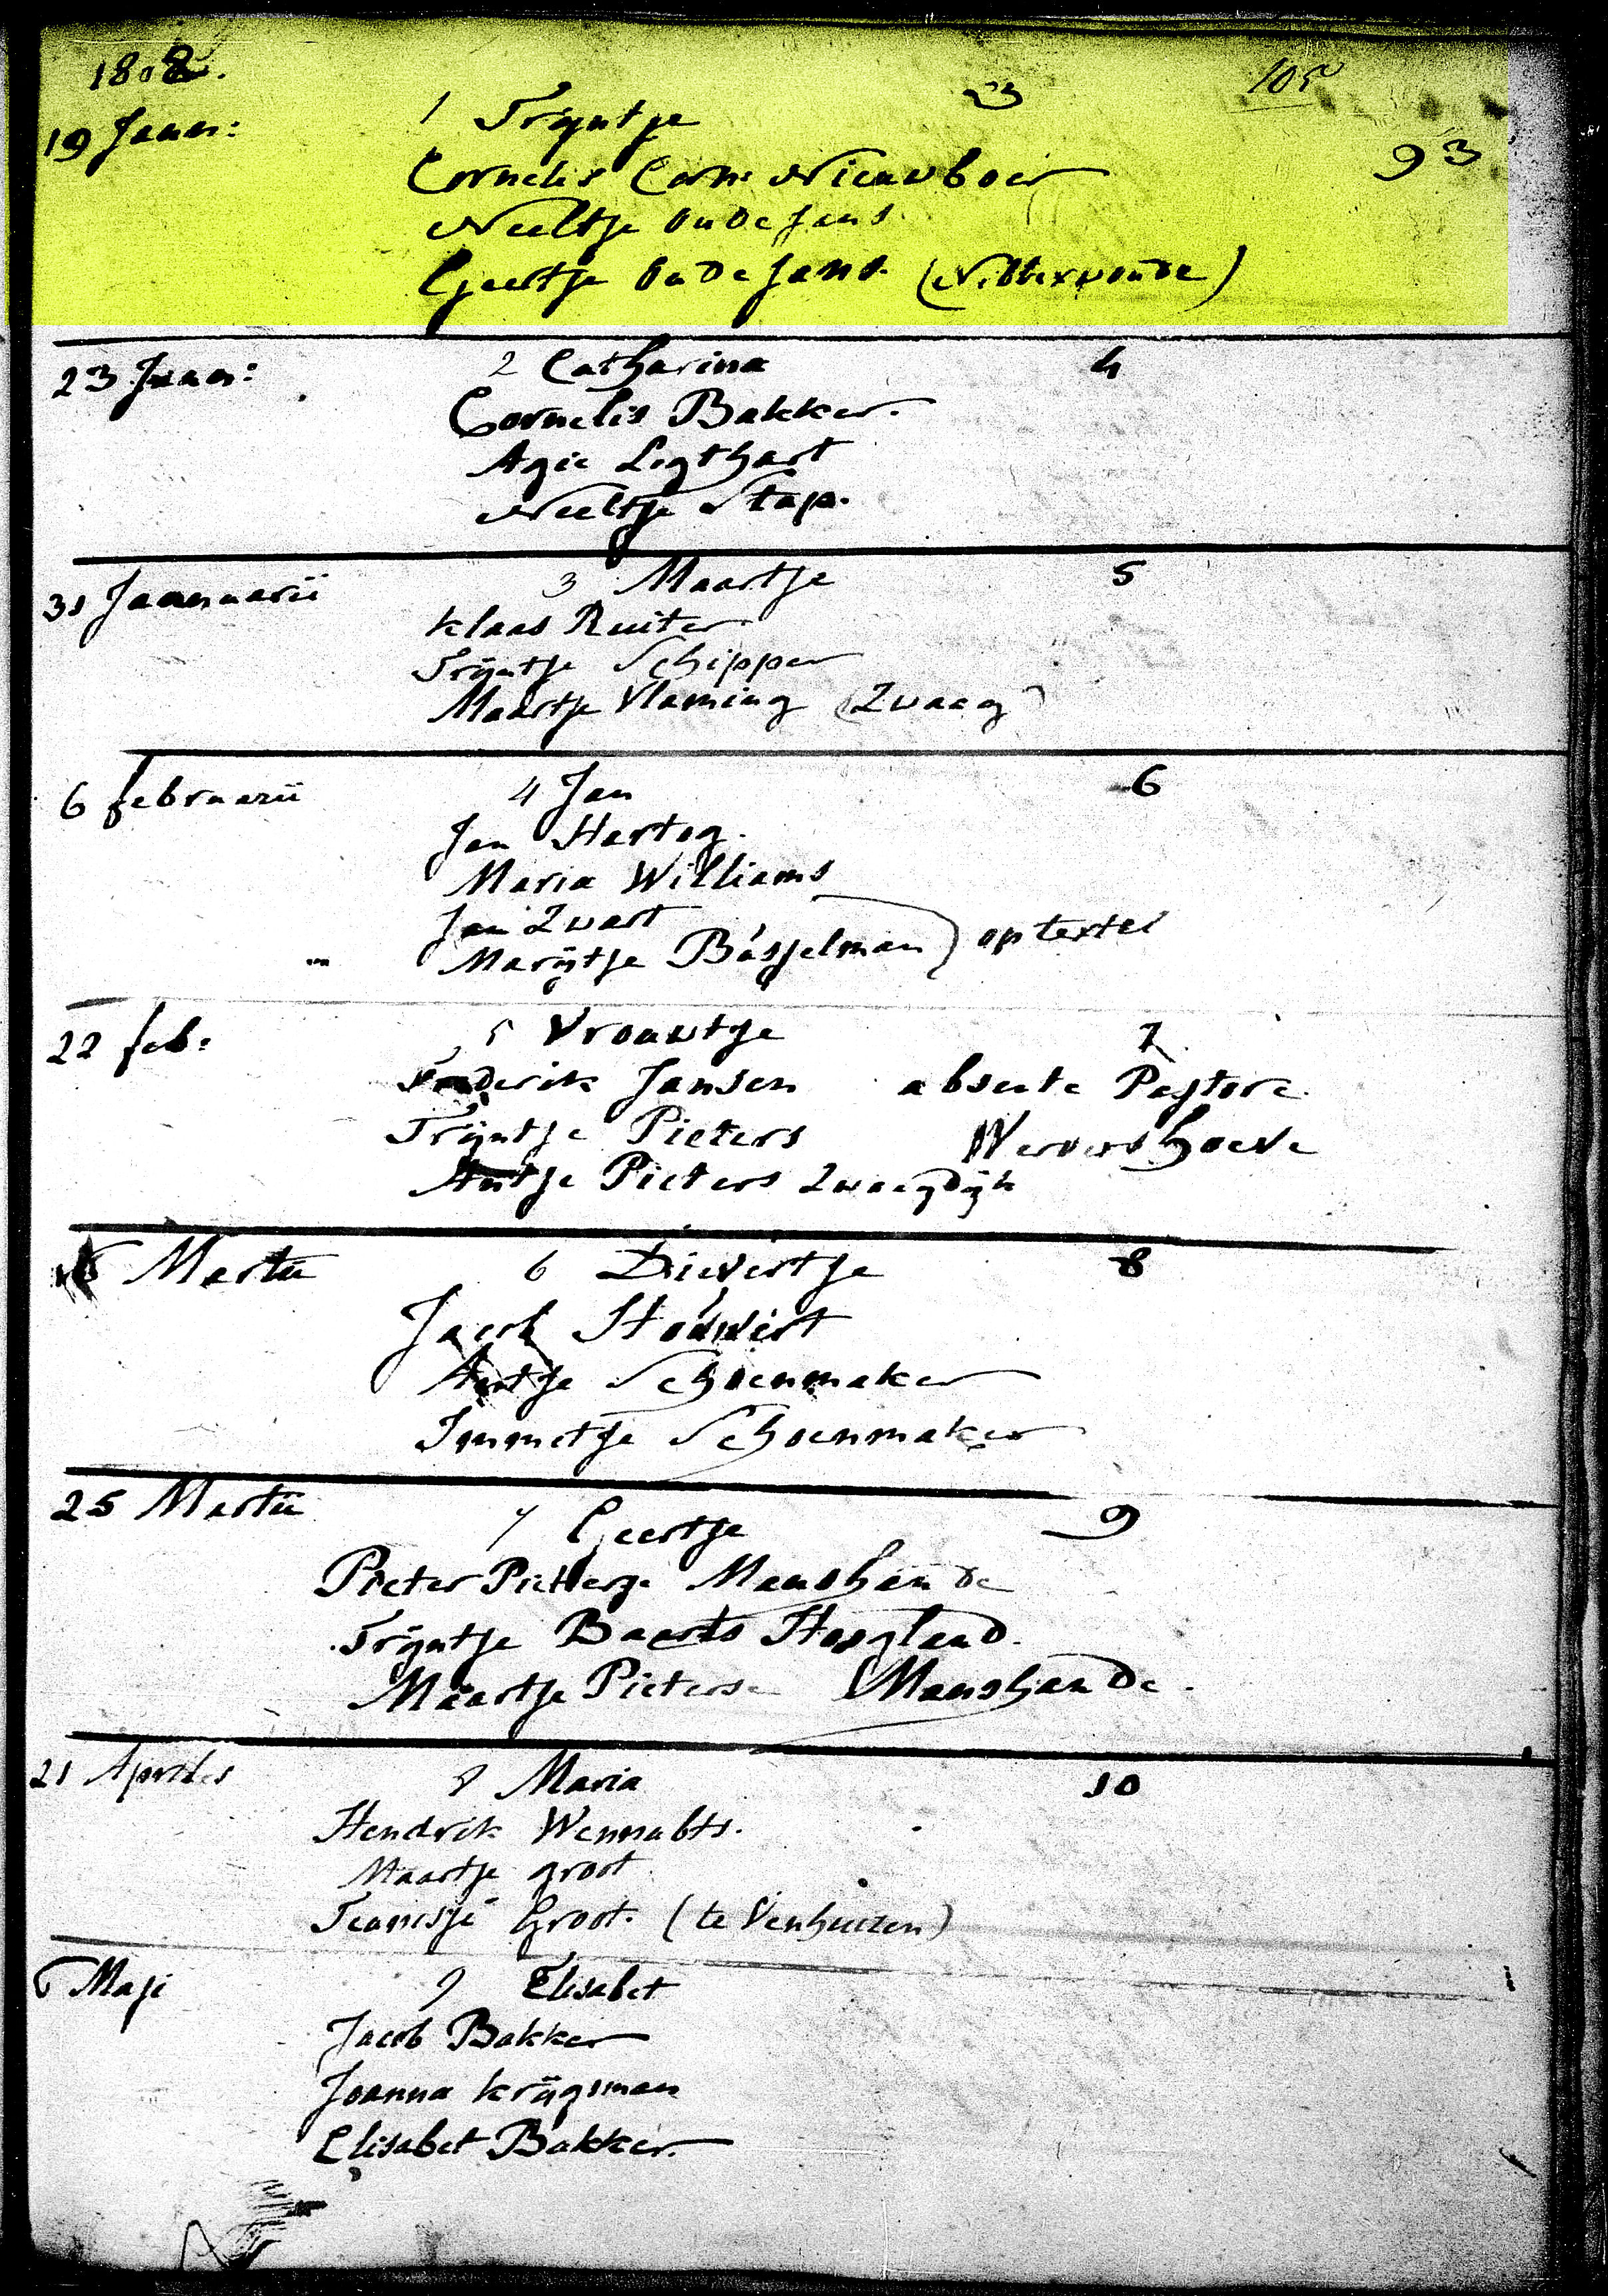 1808. 105
1 Trijntje 23
19 Janu: 93
Cornelis Corn: Nieuwboer
Neeltje Oude Jans
Geertje Oude Jans. (Nibbixwoude)
23 Janu: 2 Catharina 4
Cornelis Bakker.
Agie Ligthart
Neeltje Stap.
31 Januarii 3 Maartje 5
Klaas Ruiter
Trijntje Schipper
Maartje Vlaming (Zwaag)
6 februarii 4 Jan 6
Jan Hartog.
Maria Williams
Jan Zwart
Marijtje Basjelman) op texel
22 feb: 5 Vrouwtje 7
Frederik Jansen absente Pastore.
Trijntje Pieters Wervershoeve
Antje Pieters Zwaagdijk
Martii 6 Dievertje 8
Jacob
Antje Schoenmaker
Immetje Schoenmaker
25 Martii 7 Geertje 9
Pieter Pieterze Manshande
Trijntje Baerts Hoogland.
Maartje Pieterse Manshande.
21 Aprilis 8 Maria 10
Hendrik
Maartje groot
Groot. (te Venhuizen)
6 Maji 9 Elisabet
Jacob Bakker
Joanna Krijgsman
Elisabet Bakker.